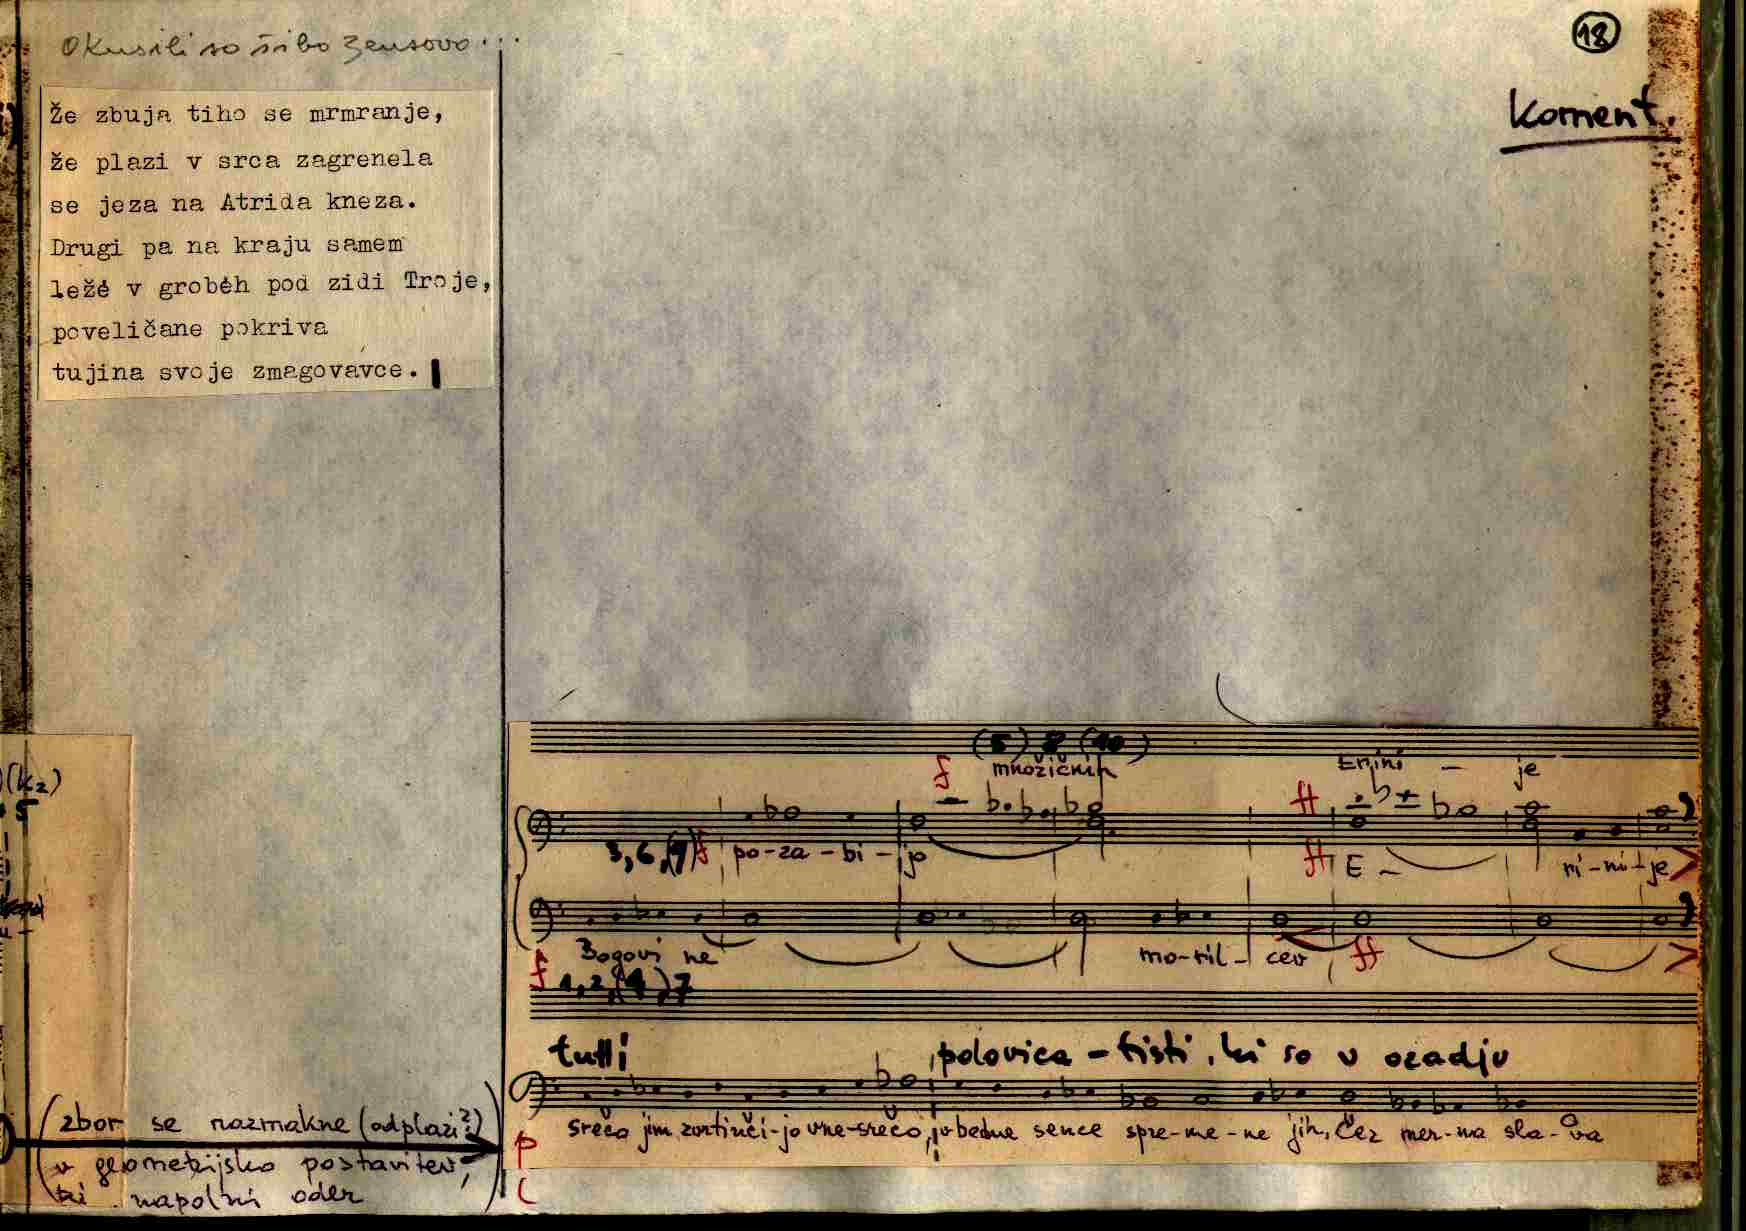 Okusili so šibo Zeusovo...
18
Koment.
Že zbuja tiho se mrmranje,
že plazi v srca zagrenela
se jeza na Atrida kneza.
Drugi pa na kraju samem
ležé v grobéh pod zidi Troje,
poveličane pokriva
tujina svoje zmagovavce.
(K2)
5
(5) 8 (10)
f množičnih Erini - je
ff
3,6,(9) f po-za-bi-jo ff E - ri-ni-je
Bogovi ne mo-ril-cev ff
f 1,2,(4),7
tutti polovica - tisti, ki so v ozadju
srečo jim zvrtinči-jo v ne-srečo, v bedne sence spre-me-ne jih, Čez mer-na sla-va
p
(zbor se razmakne (odplazi?)
v geometrijsko postavitev,
ki napolni oder)